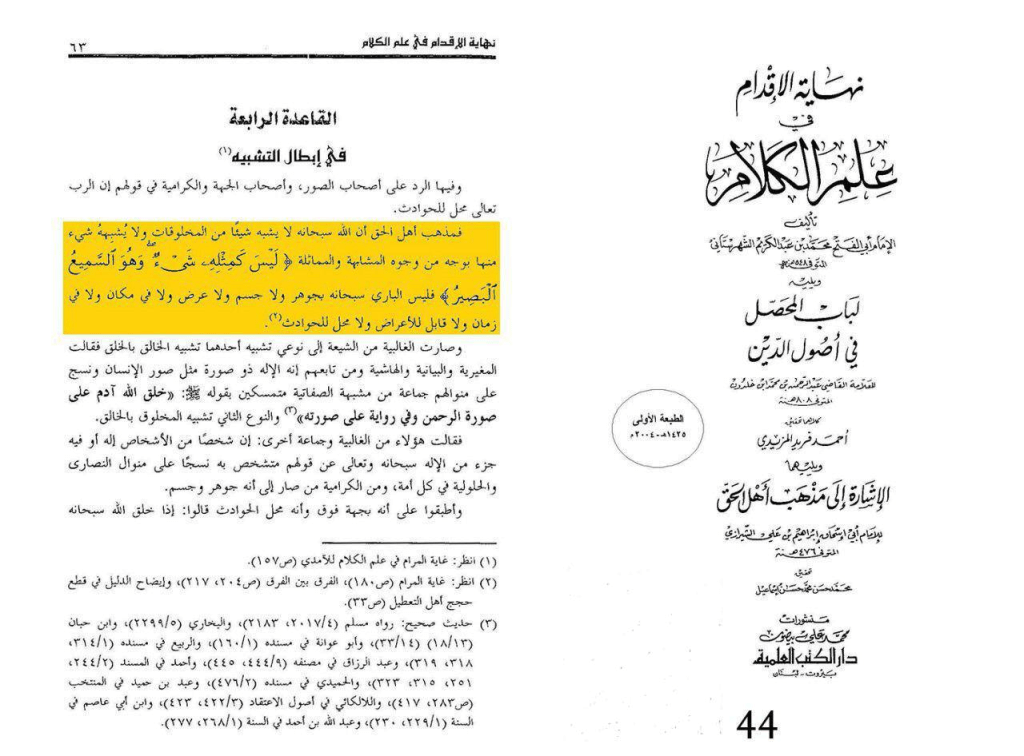 نهاية الإقدام في علم الكلام
٦٣
القاعدة الرابعة
في إبطال التشبيه(١)
وفيها الرد على أصحاب الصور، وأصحاب الجهة والكرامية في قولهم إن الرب
تعالى محل للحوادث.
فمذهب أهل الحق أن الله سبحانه لا يشبه شيئًا من المخلوقات ولا يُشبههُ شيء
منها بوجه من وجوه المشابهة والمماثلة ﴿ لَيْسَ كَمِثْلِهِۦ شَىْءٌ ۖ وَهُوَ ٱلسَّمِيعُ
ٱلْبَصِيرُ ﴾ فليس الباري سبحانه بجوهر ولا جسم ولا عرض ولا في مكان ولا في
زمان ولا قابل للأعراض ولا محل للحوادث(٢).
وصارت الغالبية من الشيعة إلى نوعي تشبيه أحدهما تشبيه الخالق بالخلق فقالت
المغيرية والبيانية والهاشية ومن تابعهم إنه الإله ذو صورة مثل صور الإنسان ونسج
على منوالهم جماعة من مشبهة الصفاتية متمسكين بقوله ﷺ: «خلق الله آدم على
صورة الرحمن وفي رواية على صورته»(٣) والنوع الثاني تشبيه المخلوق بالخالق.
فقالت هؤلاء من الغالبية وجماعة أخرى: إن شخصًا من الأشخاص إله أو فيه
جزء من الإله سبحانه وتعالى عن قولهم متشخص به نسجًا على منوال النصارى
والحلولية في كل أمة، ومن الكرامية من صار إلى أنه جوهر وجسم.
وأطبقوا على أنه بجهة فوق وأنه محل الحوادث قالوا: إذا خلق الله سبحانه
(١) انظر: غاية المرام في علم الكلام للآمدي (ص١٥٧).
(٢) انظر: غاية المرام (ص١٨٠)، الفرق بين الفرق (ص٢٠٤، ٢١٧)، وإيضاح الدليل في قطع
حجج أهل التعطيل (ص٣٣).
(٣) حديث صحيح: رواه مسلم (٢٠١٧/٤، ٢١٨٣)، والبخاري (٢٢٩٩/٥)، وابن حبان
(١٨/١٣) (٣٣/١٤)، وأبو عوانة في مسنده (١٦٠/١)، والربيع في مسنده (٣١٤/١،
٣١٨، ٣١٩)، وعبد الرزاق في مصنفه (٤٤٤/٩، ٤٤٥)، وأحمد في المسند (٢٤٤/٢،
٢٥١، ٣١٥، ٣٢٣)، والحميدي في مسنده (٤٧٦/٢)، وعبد بن حميد في المنتخب
(ص٢٨٣، ٤١٧)، واللالكائي في أصول الاعتقاد (٤٢٢/٣، ٤٢٣)، وابن أبي عاصم في
السنة (٢٢٩/١، ٢٣٠)، وعبد الله بن أحمد في السنة (٢٦٨/١، ٢٧٧).
نهاية الإقدام
في
علم الكلام
تأليف
الإمام أبي الفتح محمد بن عبد الكريم الشهرستاني
المتوفى ٥٤٨هـ
ويليه
لباب المحصل
في أصول الدين
للعلامة القاضي عبد الرحمن بن محمد ابن خلدون
المتوفى ٨٠٨ هـنة
كلاهما تحقيق
أحمد فريد المزيدي
ويليها
الإشارة إلى مذهب أهل الحق
للإمام أبي إسحاق إبراهيم بن علي الشيرازي
المتوفى ٤٧٦ هـنة
تحقيق
محمد حسن محمد حسن إسماعيل
الطبعة الأولى
١٤٢٥هـ-٢٠٠٤م
منشورات
محمد علي بيضون
دار الكتب العلمية
بيروت - لبنان
44